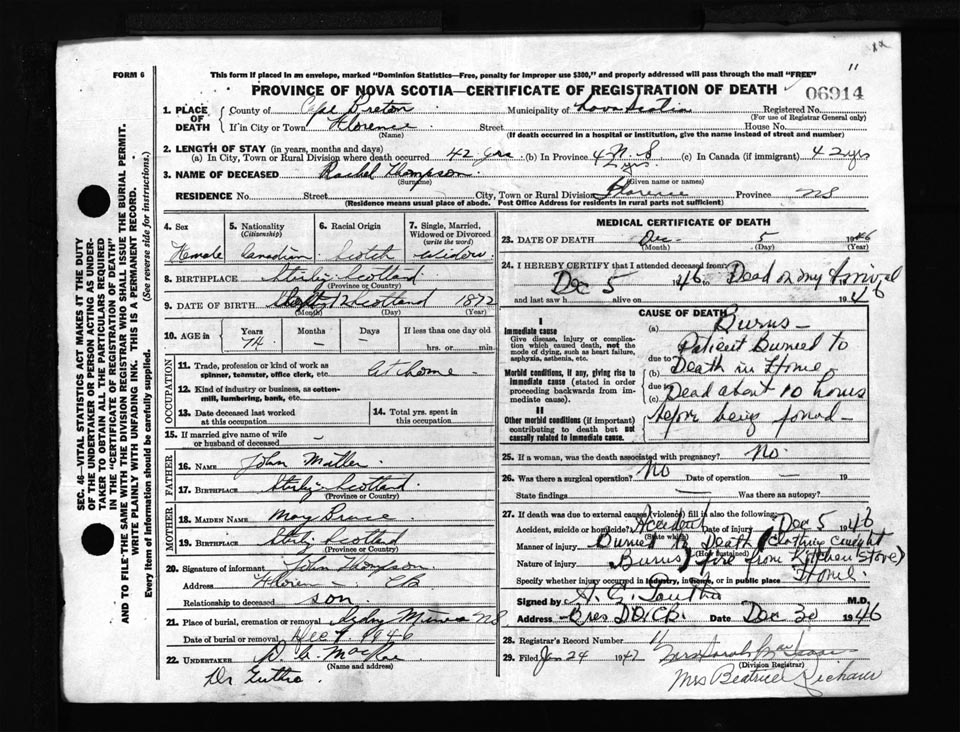 FORM 6
This form if placed in an envelope, marked "Dominion Statistics—Free, penalty for improper use $300," and properly addressed will pass through the mail "FREE"
PROVINCE OF NOVA SCOTIA—CERTIFICATE OF REGISTRATION OF DEATH
06914
11
SEC. 46—VITAL STATISTICS ACT MAKES IT THE DUTY
OF THE UNDERTAKER OR PERSON ACTING AS UNDER-
TAKER TO OBTAIN ALL THE PARTICULARS REQUIRED
IN THE "CERTIFICATE OF REGISTRATION OF DEATH"
AND TO FILE THE SAME WITH THE DIVISION REGISTRAR WHO SHALL ISSUE THE BURIAL PERMIT.
WRITE PLAINLY WITH UNFADING INK. THIS IS A PERMANENT RECORD.
Every item of information should be carefully supplied. (See reverse side for instructions.)
1. PLACE OF DEATH County of Cape Breton Municipality of Nova Scotia Registered No.
(For use of Registrar General only)
If in City or Town Florence Street House No.
(Name) (If death occurred in a hospital or institution, give the name instead of street and number)
2. LENGTH OF STAY (in years, months and days)
(a) In City, Town or Rural Division where death occurred 42 yrs (b) In Province N.S 42 yrs (c) In Canada (if immigrant) 42 yrs
3. NAME OF DECEASED Rachel Thompson
(Surname) (Given name or names)
RESIDENCE No. Street City, Town or Rural Division Florence Province NS
(Residence means usual place of abode. Post Office Address for residents in rural parts not sufficient)
4. Sex Female
5. Nationality (Citizenship) Canadian
6. Racial Origin Scotch
7. Single, Married, Widowed or Divorced (write the word) Widow
8. BIRTHPLACE Scotland
(Province or Country)
9. DATE OF BIRTH Scotland 1872
(Month) (Day) (Year)
10. AGE in Years 74 Months — Days — If less than one day old
hrs. or min.
OCCUPATION
11. Trade, profession or kind of work as spinner, teamster, office clerk, etc. At home
12. Kind of industry or business, as cotton-mill, lumbering, bank, etc.
13. Date deceased last worked at this occupation
14. Total yrs. spent in this occupation
15. If married give name of wife or husband of deceased —
FATHER
16. NAME John Miller
17. BIRTHPLACE Scotland
(Province or Country)
MOTHER
18. MAIDEN NAME May Bruce
19. BIRTHPLACE Scotland
(Province or Country)
20. Signature of informant John Thompson
Address Florence CB
Relationship to deceased son
21. Place of burial, cremation or removal Sydney Mines NS
Date of burial or removal Dec 1946
22. UNDERTAKER
(Name and address)
MEDICAL CERTIFICATE OF DEATH
23. DATE OF DEATH Dec 5 1946
(Month) (Day) (Year)
24. I HEREBY CERTIFY that I attended deceased from
Dec 5 1946 to Dead on my Arrival
and last saw h alive on 194
CAUSE OF DEATH
I
Immediate cause
Give disease, injury or complication which caused death, not the mode of dying, such as heart failure, asphyxia, asthenia, etc.
Morbid conditions, if any, giving rise to immediate cause (stated in order proceeding backwards from immediate cause).
II
Other morbid conditions (if important) contributing to death but not causally related to immediate cause.
(a) Burns —
Patient Burned to
due to
(b) Death in Home
due to
(c) Dead about 10 hours
before being found —
25. If a woman, was the death associated with pregnancy? No.
26. Was there a surgical operation? No Date of operation — 19
State findings — Was there an autopsy?
27. If death was due to external causes (violence) fill in also the following:
Accident, suicide or homicide? Accident Date of injury Dec 5 1946
(State which)
Manner of injury Burned to Death (clothing caught
(How sustained)
Nature of injury Burns fire from Kitchen stove)
Specify whether injury occurred in industry, in home, or in public place Home.
Signed by M.D.
Address Date Dec 30 1946
28. Registrar's Record Number 11
29. Filed Jan 24 1947
(Division Registrar)
Mrs Beatrice